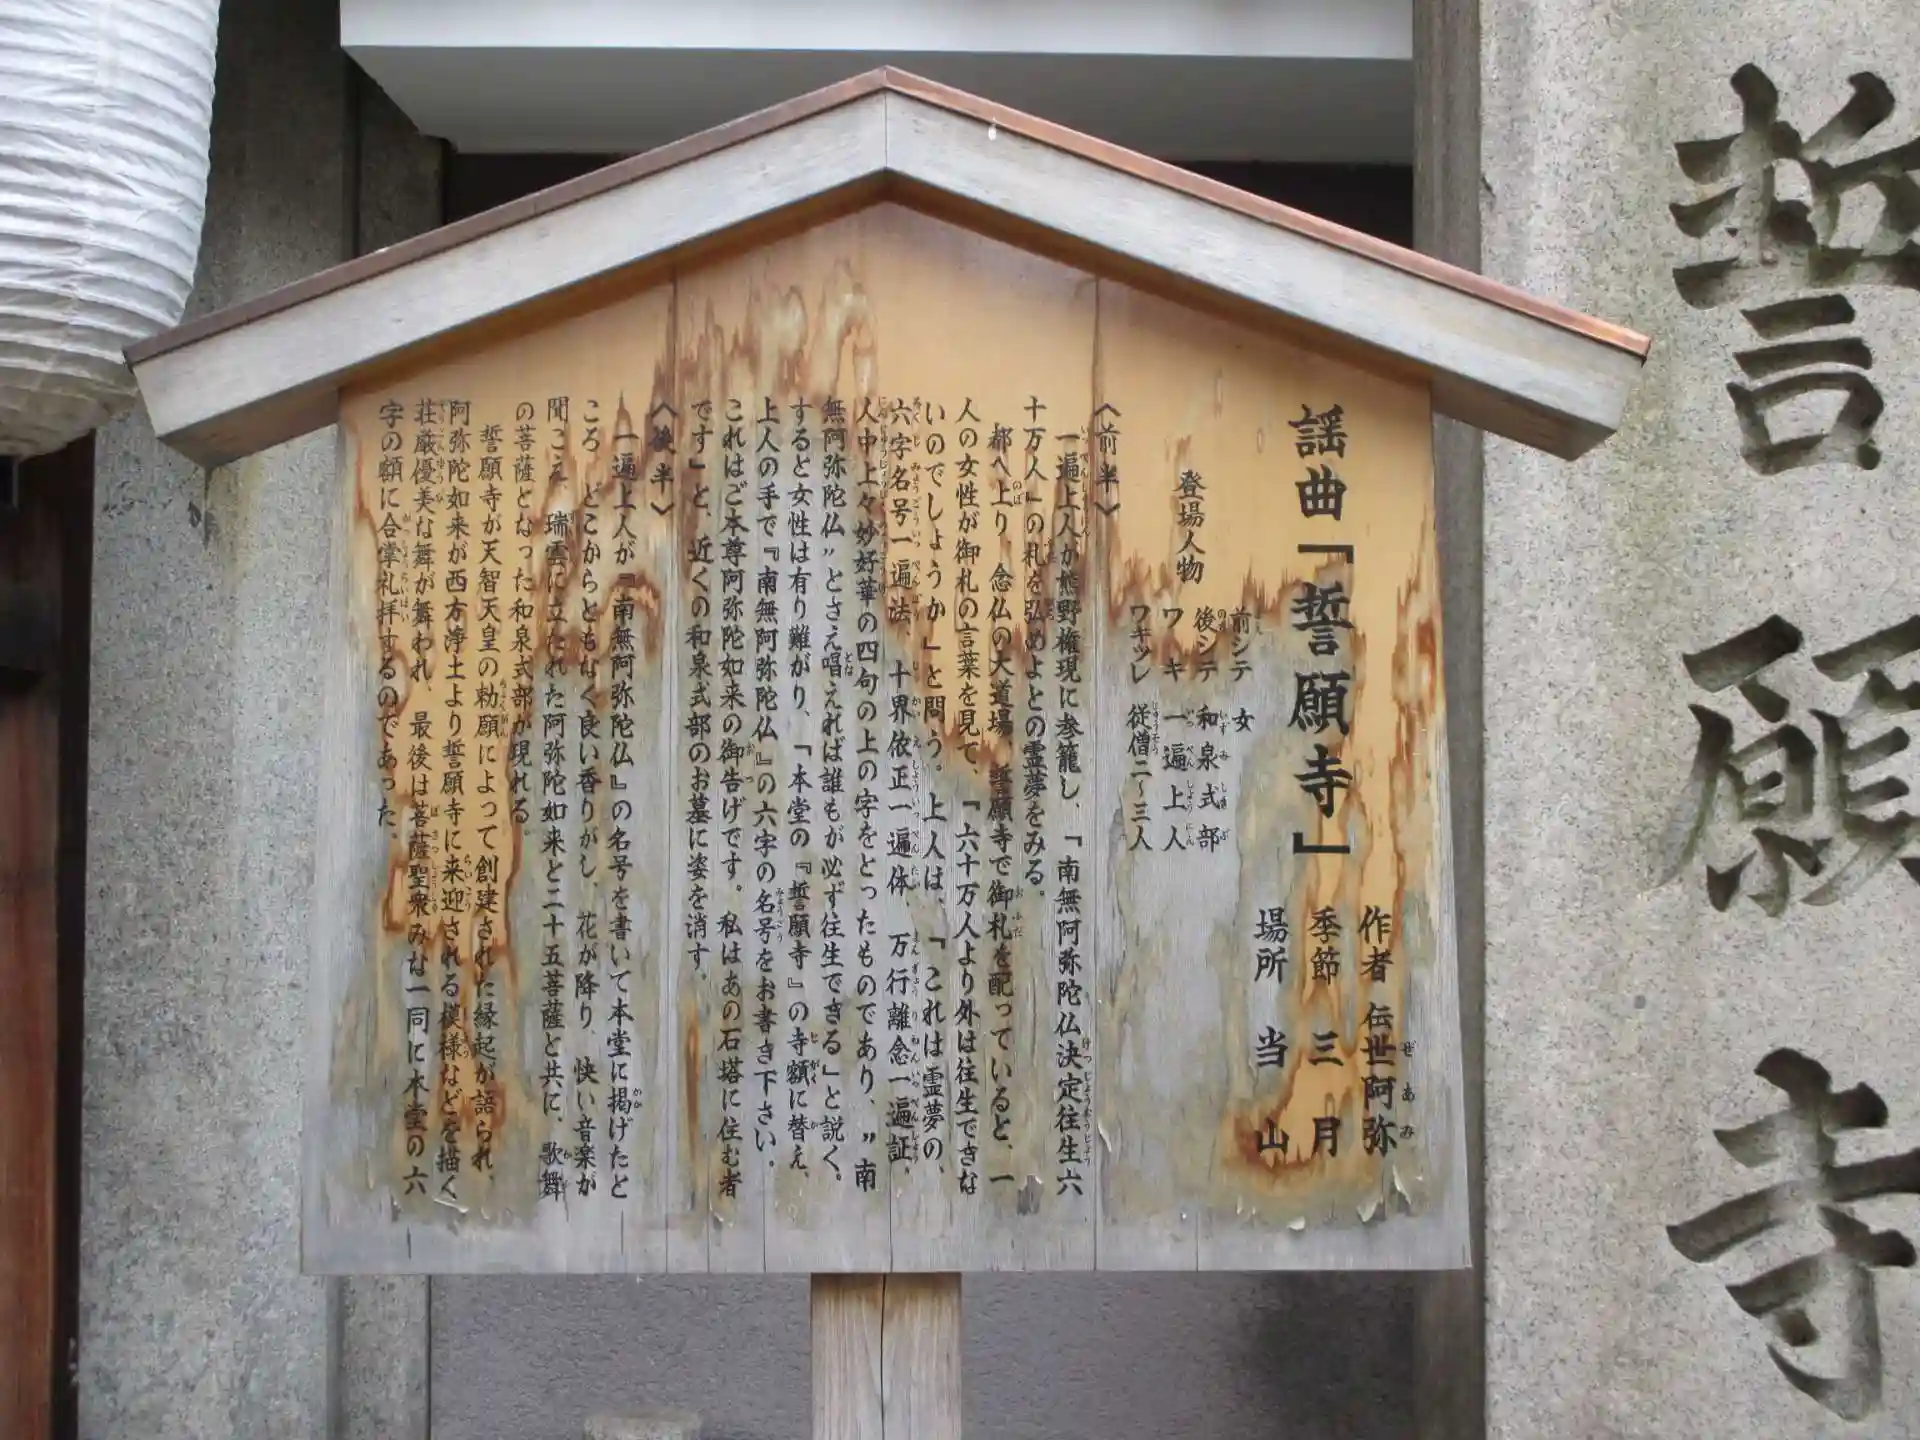 誓願寺
謡曲「誓願寺」
作者 伝世阿弥
季節 三月
場所 当山
登場人物
前シテ 女
後シテ 和泉式部
ワキ 一遍上人
ワキツレ 従僧二～三人
〈前半〉
一遍上人が熊野権現に参籠し、「南無阿弥陀仏決定往生六
十万人」の札を弘めよとの霊夢をみる。
都へ上り 念仏の大道場、誓願寺で御札を配っていると、一
人の女性が御札の言葉を見て、「六十万人より外は往生できな
いのでしょうか」と問う。上人は、「これは霊夢の、
六字名号一遍法、十界依正一遍体、万行離念一遍証、
人中上々妙好華の四句の上の字をとったものであり、〝南
無阿弥陀仏〟とさえ唱えれば誰もが必ず往生できる」と説く。
すると女性は有り難がり、「本堂の『誓願寺』の寺額に替え、
上人の手で『南無阿弥陀仏』の六字の名号をお書き下さい。
これはご本尊阿弥陀如来の御告げです。私はあの石塔に住む者
です」と、近くの和泉式部のお墓に姿を消す。
〈後半〉
一遍上人が『南無阿弥陀仏』の名号を書いて本堂に掲げたと
ころ どこからともなく良い香りがし、花が降り、快い音楽が
聞こえ 瑞雲に立たれた阿弥陀如来と二十五菩薩と共に、歌舞
の菩薩となった和泉式部が現れる。
誓願寺が天智天皇の勅願によって創建された縁起が語られ、
阿弥陀如来が西方浄土より誓願寺に来迎される模様などを描く
荘厳優美な舞が舞われ、最後は菩薩聖衆みな一同に本堂の六
字の額に合掌礼拝するのであった。